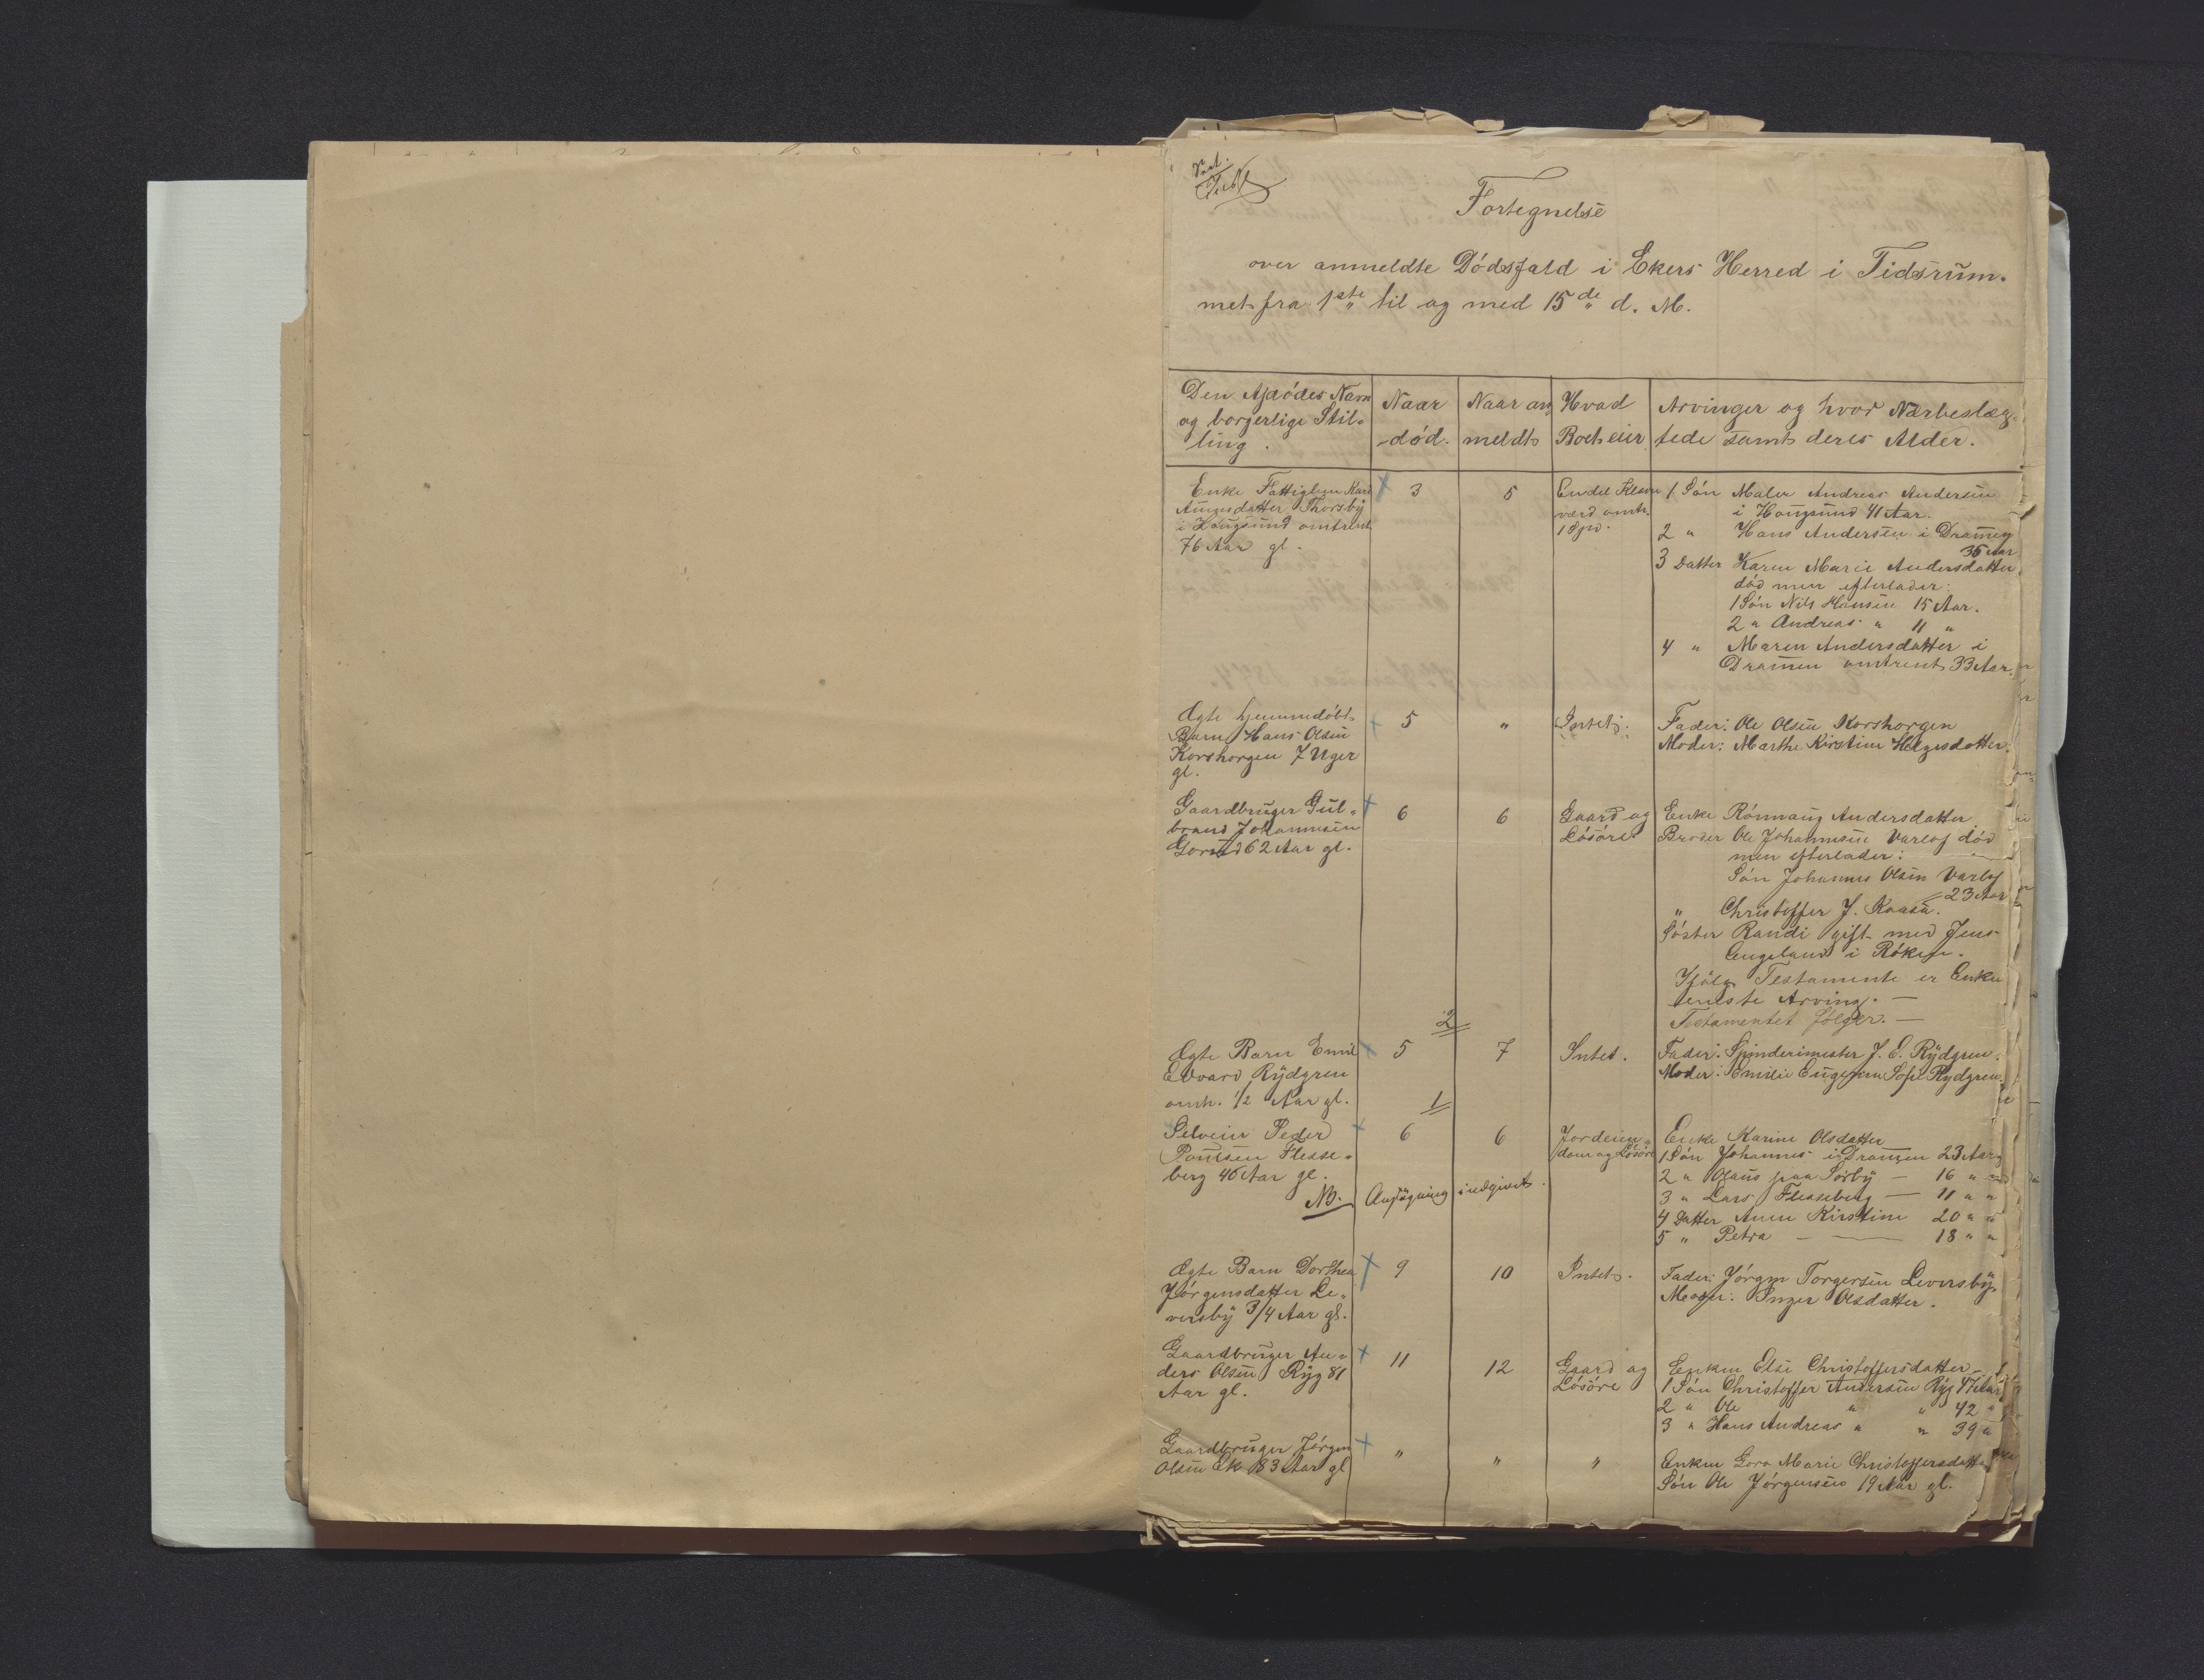 Fortegnelse
over anmeldte Dödsfald i Ekers Herred i Tidsrum-
met fra 1ste til og med 15de d. M.
Den Afdödes Navn
og borgerlige Stil-
ling.
Naar
död.
Naar an
meldt
Hvad
Boet eier
Arvinger og hvor Nærbeslæg-
tede samt deres Alder.
Enke Fattiglem Kari
datter Thorsby
i Hougsund omtrent
76 Aar gl.
3
5
Endel Klæer
værd omtr.
18
1 Sön Maler Andreas Andersen
i Hougsund 41 Aar.
2 " Hans Andersen i Dramen
35 Aar
3 Datter Karen Marie Andersdatter
död men efterlader:
1 Sön Nils Hansen 15 Aar.
2 " Andreas " 11 "
4 " Maren Andersdatter i
Dramen omtrent 33 Aar.
Ægte hjemmedöbt
Barn Hans Olsen
Korshorgen 7 Uger
gl.
5
"
Intet.
Fader: Ole Olsen Korshorgen
Moder: Marthe Kirstine Helgesdatter.
Gaardbruger Gul-
brand Johannesen
62 Aar gl.
6
6
Gaard og
Lösöre
Enke Rönnaug Andersdatter
Broder Ole Johannesen Varlo död
men efterlader:
Sön Johannes Olsen Varlo
23 Aar
" Christoffer J. Kaasa.
Söster Randi gift med Jens
i Röken.
Ifölge Testamente er Enken
eneste Arving. —
Testamentet fölger. —
2
Ægte Barn Emil
Edvard Rydgren
omtr. 1/2 Aar gl.
5
7
Intet.
Fader: Spinderimester J. E. Rydgren.
Moder: Emilie Sofie Rydgren.
1
Selveier Peder
Poulsen Flesse-
berg 46 Aar gl.
6
6
Jordeien-
dom og Lösöre
Enke Karine Olsdatter
1 Sön Johannes i Dramen 23 Aar
2 " Olaus paa Sörby — 16 " "
3 " Lars Flesseberg — 11 " "
4 Datter Anne Kirstine 20 " "
5 " Petra — 18 " "
NB. Ansögning indgivet.
Ægte Barn Dorthea
Jörgensdatter Le-
versby 3/4 Aar gl.
9
10
Intet.
Fader: Jörgen Torgersen Leversby.
Moder: Inger Olsdatter.
Gaardbruger An-
ders Olsen Ryg 81
Aar gl.
11
12
Gaard og
Lösöre
Enken Else Christoffersdatter
1 Sön Christoffer Andersen Ryg 47 Aar
2 " Ole " " 42 "
3 " Hans Andreas " " 39 "
Gaardbruger Jörgen
Olsen Ek 83 Aar gl
"
"
"
Enken Marie Christoffersdatter
Sön Ole Jörgensen 19 Aar gl.